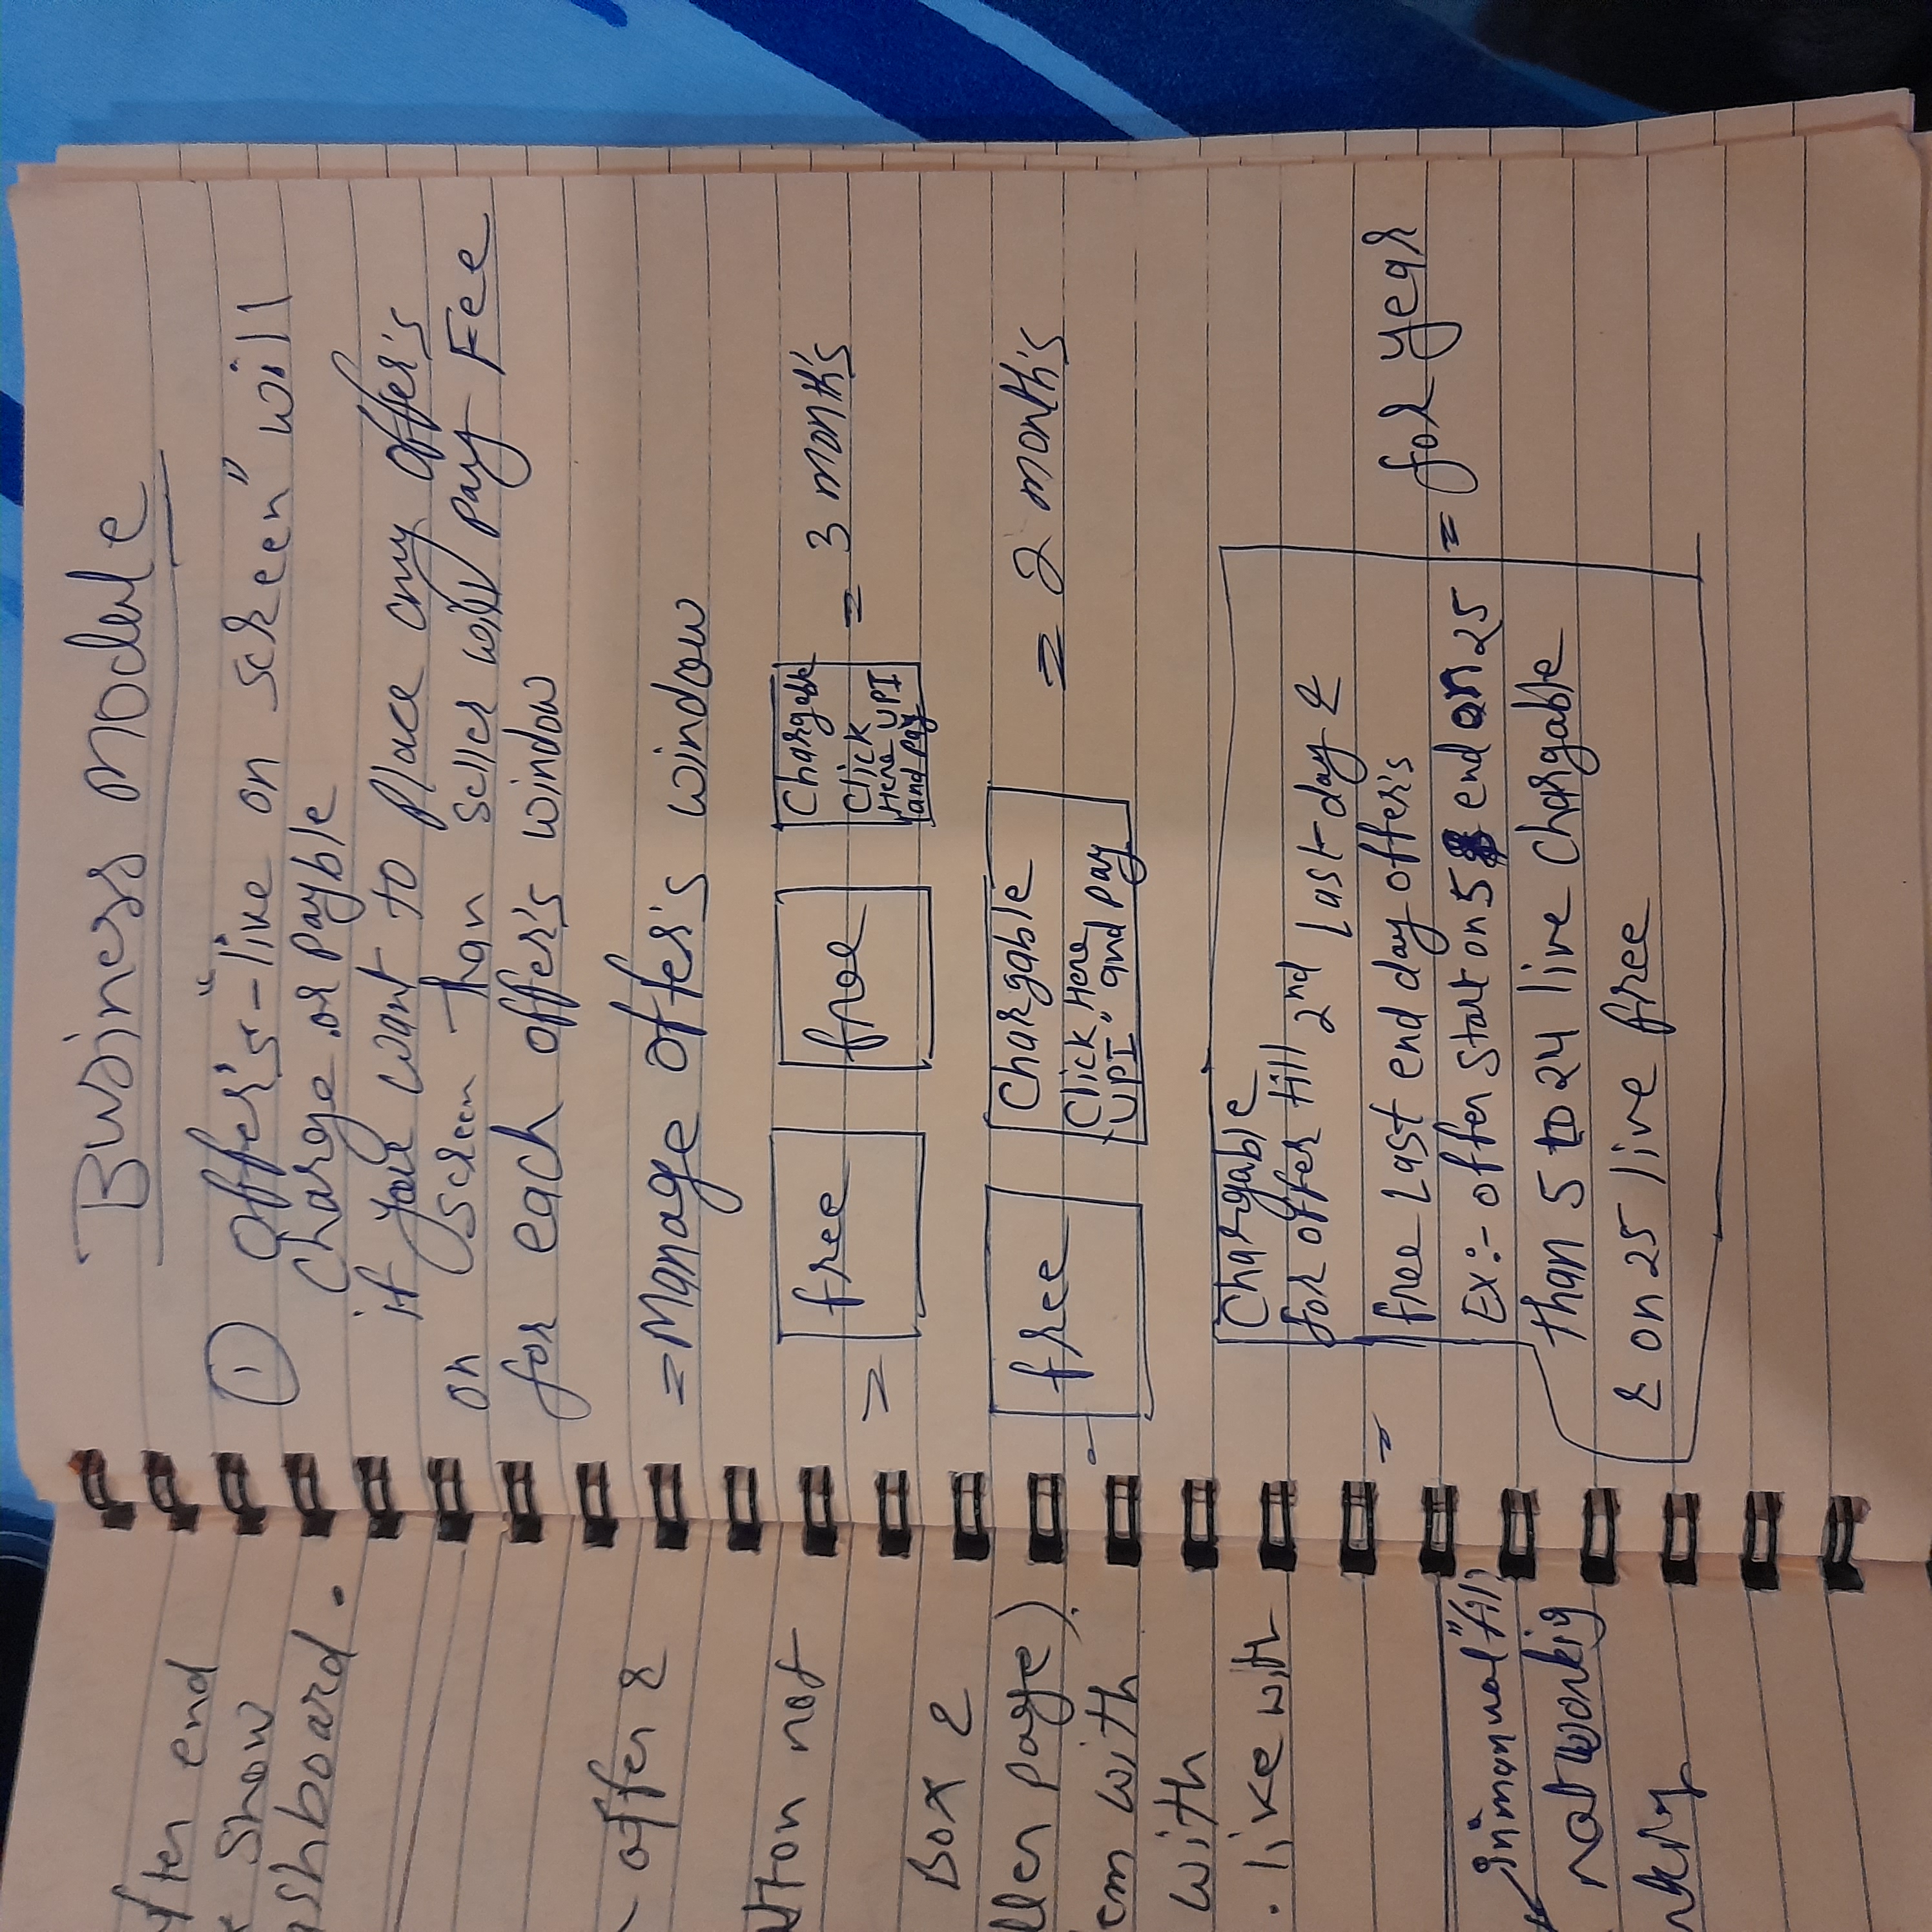 ften end
Show
ashboard.
offer &
utton not
Box &
ller page)
em with
with
. like with
in "manual" fill
not workig
Business Module
① offer's - "live on screen" will
Charge or payble
if you want to place any offer's
on screen than seller will pay Fee
for each offer's window
= Manage offer's window
= free free Chargable = 3 month's
Click
Here UPI
and pay
= free Chargable = 2 month's
Click Here
"UPI" and pay
Chargable
for offer till 2nd Last day &
= free Last end day offer's = for year
Ex:- offer start on 5 end on 25
than 5 to 24 live Chargable
& on 25 live free